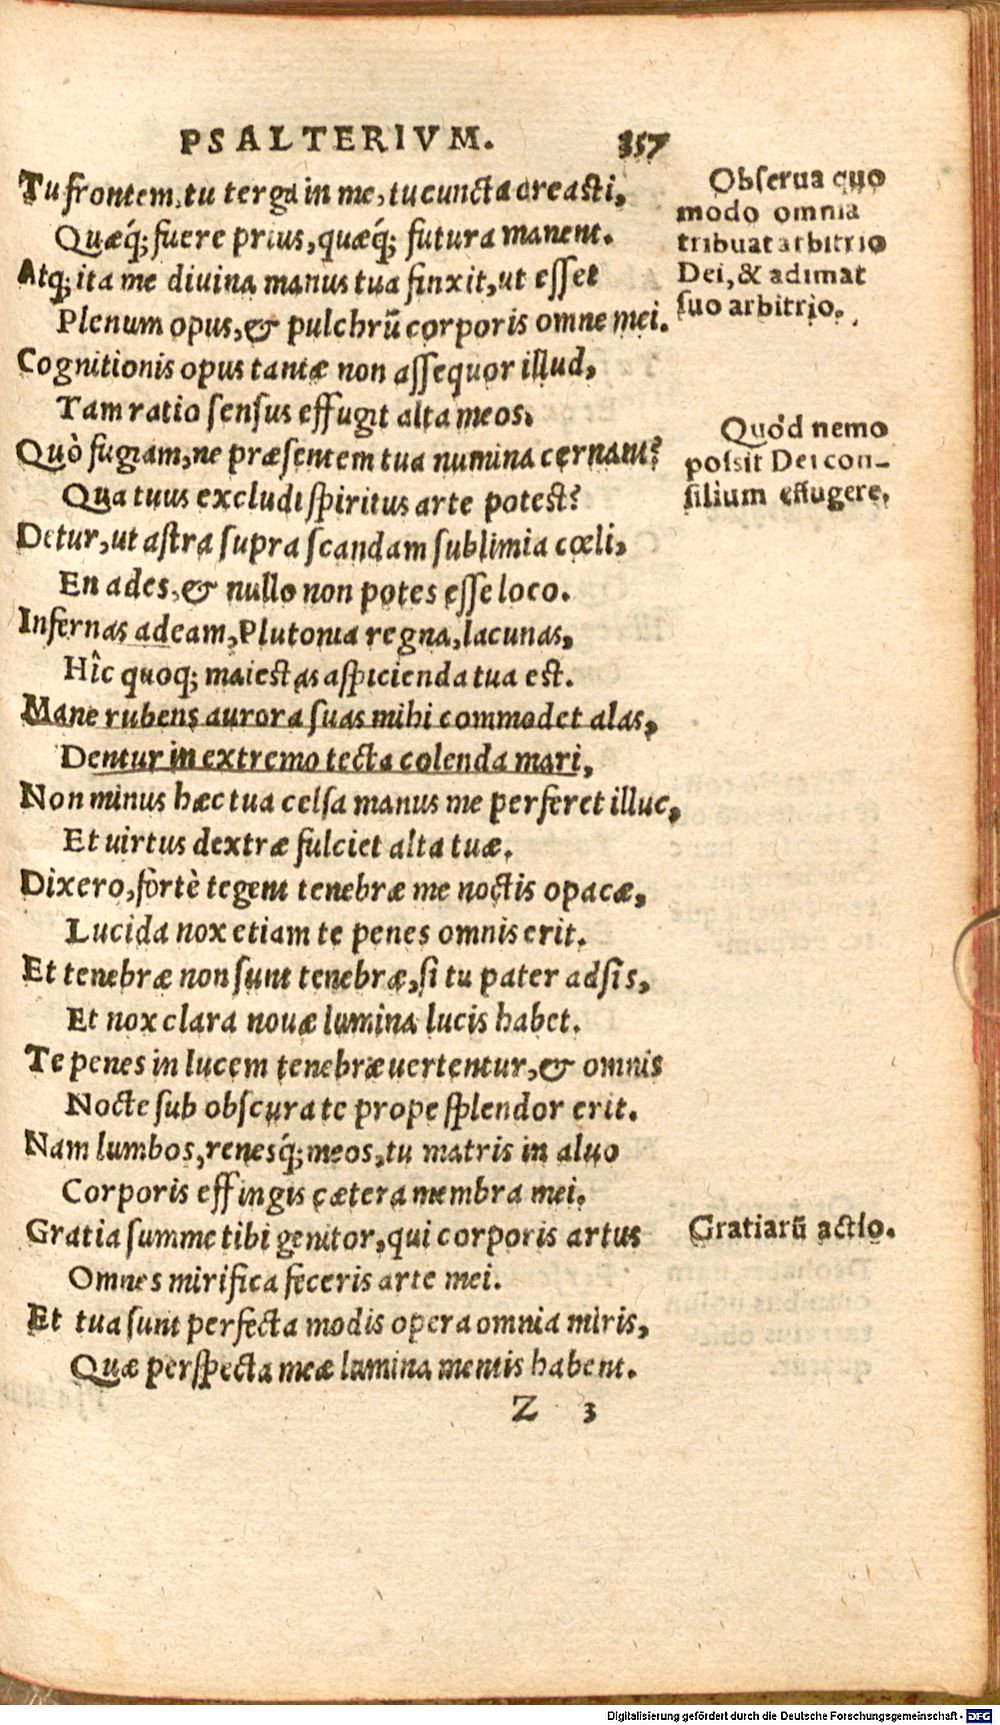 PSALTERIVM. 357
Tu frontem, tu terga in me, tu cuncta creasti,
Quæq́; fuere prius, quæq́; futura manent.
Atq; ita me divina manus tua finxit, ut esset
Plenum opus, & pulchrũ corporis omne mei.
Obserua quo
modo omnia
tribuat arbitrio
Dei, & adimat
suo arbitrio.
Cognitionis opus tantæ non assequor illud,
Tam ratio sensus effugit alta meos.
Quò fugiam, ne præsentem tua numina cernant?
Qua tuus excludi spiritus arte potest?
Quòd nemo
possit Dei con-
silium effugere.
Detur, ut astra supra scandam sublimia cœli,
En ades, & nullo non potes esse loco.
Infernas adeam, Plutonia regna, lacunas,
Hîc quoq; maiestas aspicienda tua est.
Mane rubens aurora suas mihi commodet alas,
Dentur in extremo tecta colenda mari,
Non minus hæc tua celsa manus me perferet illuc,
Et uirtus dextræ fulciet alta tuæ.
Dixero, fortè tegent tenebræ me noctis opacæ,
Lucida nox etiam te penes omnis erit.
Et tenebræ non sunt tenebræ, si tu pater adsis,
Et nox clara nouæ lumina lucis habet.
Te penes in lucem tenebræ uertentur, & omnis
Nocte sub obscura te prope splendor erit.
Nam lumbos, renesq́; meos, tu matris in aluo
Corporis effingis cætera membra mei.
Gratia summe tibi genitor, qui corporis artus
Omnes mirifica feceris arte mei.
Gratiarũ actio.
Et tua sunt perfecta modis opera omnia miris,
Quæ perspecta meæ lumina mentis habent.
Z 3
Digitalisierung gefördert durch die Deutsche Forschungsgemeinschaft - DFG